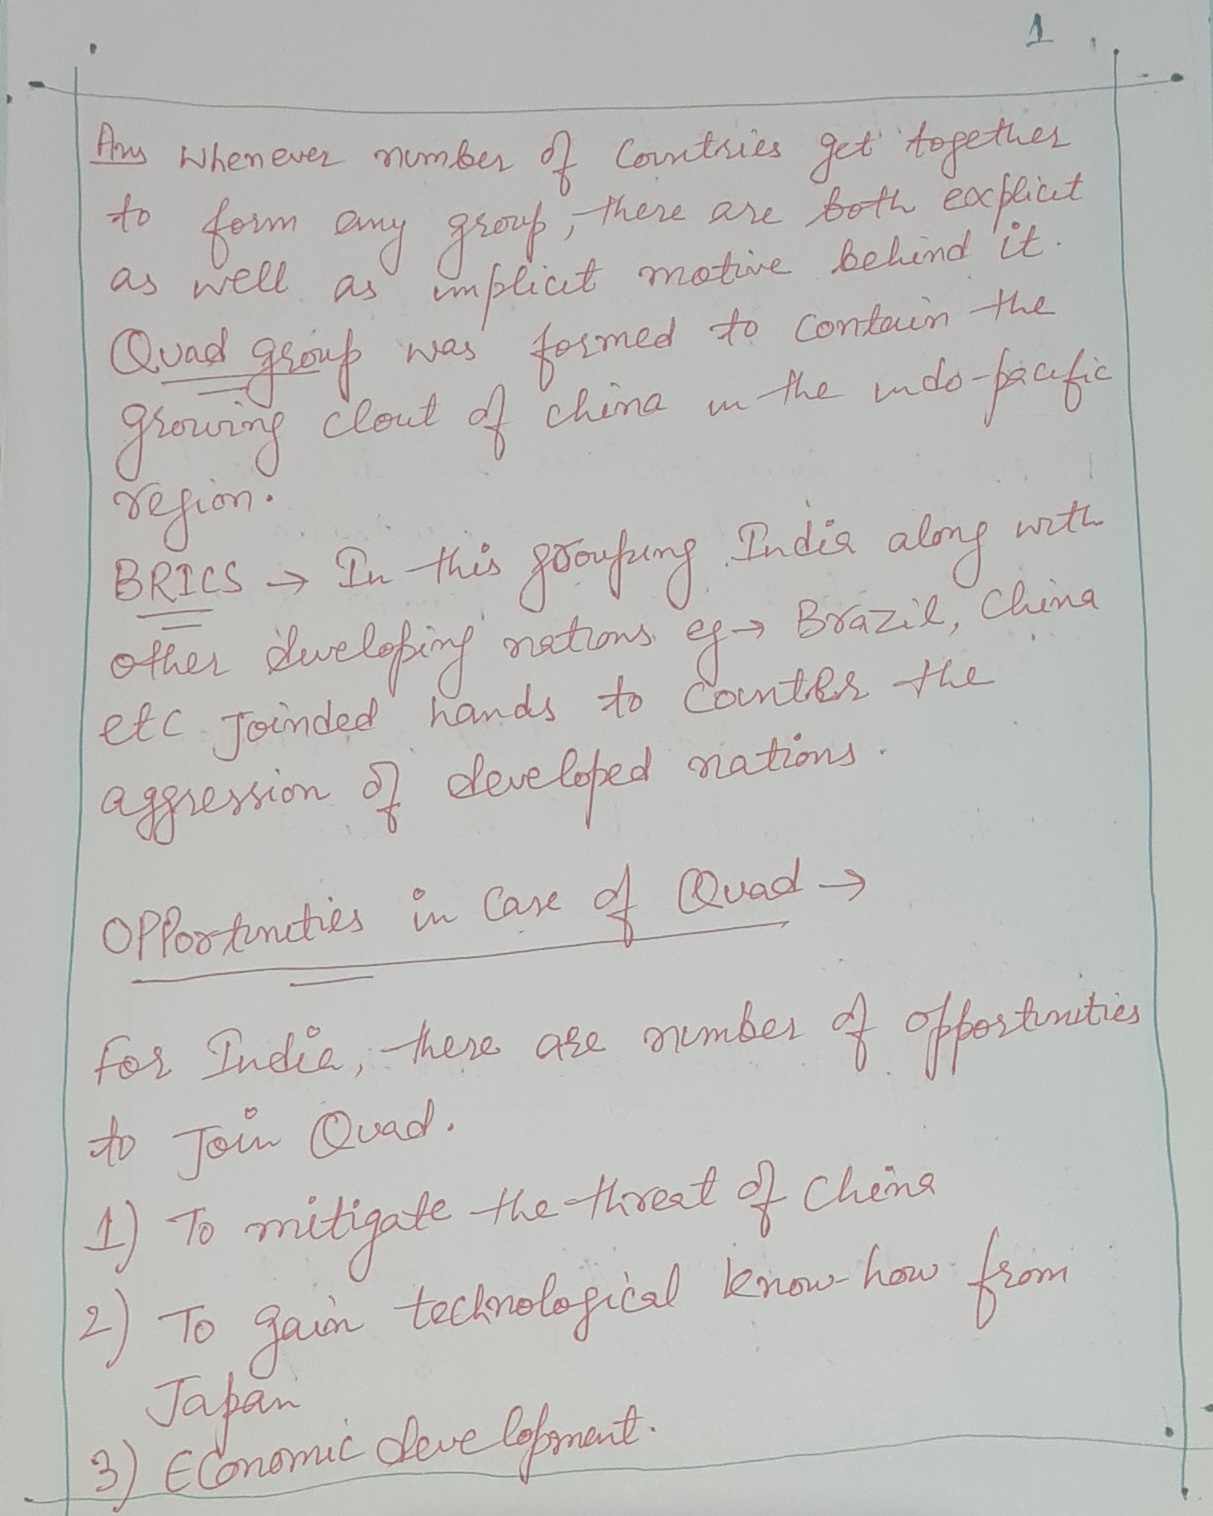 1
Ans Whenever number of Countries get together
to form any group, there are both explicit
as well as implicit motive behind it.
Quad group was formed to contain the
growing clout of china in the indo-pacific
region.
BRICS → In this grouping India along with
other developing nations eg → Brazil, China
etc Joinded hands to counter the
aggression of developed nations.
OPPortunities in Case of Quad →
For India, there are number of opportunities
to Join Quad.
1) To mitigate the threat of China
2) To gain technological know-how from
Japan
3) Economic development.